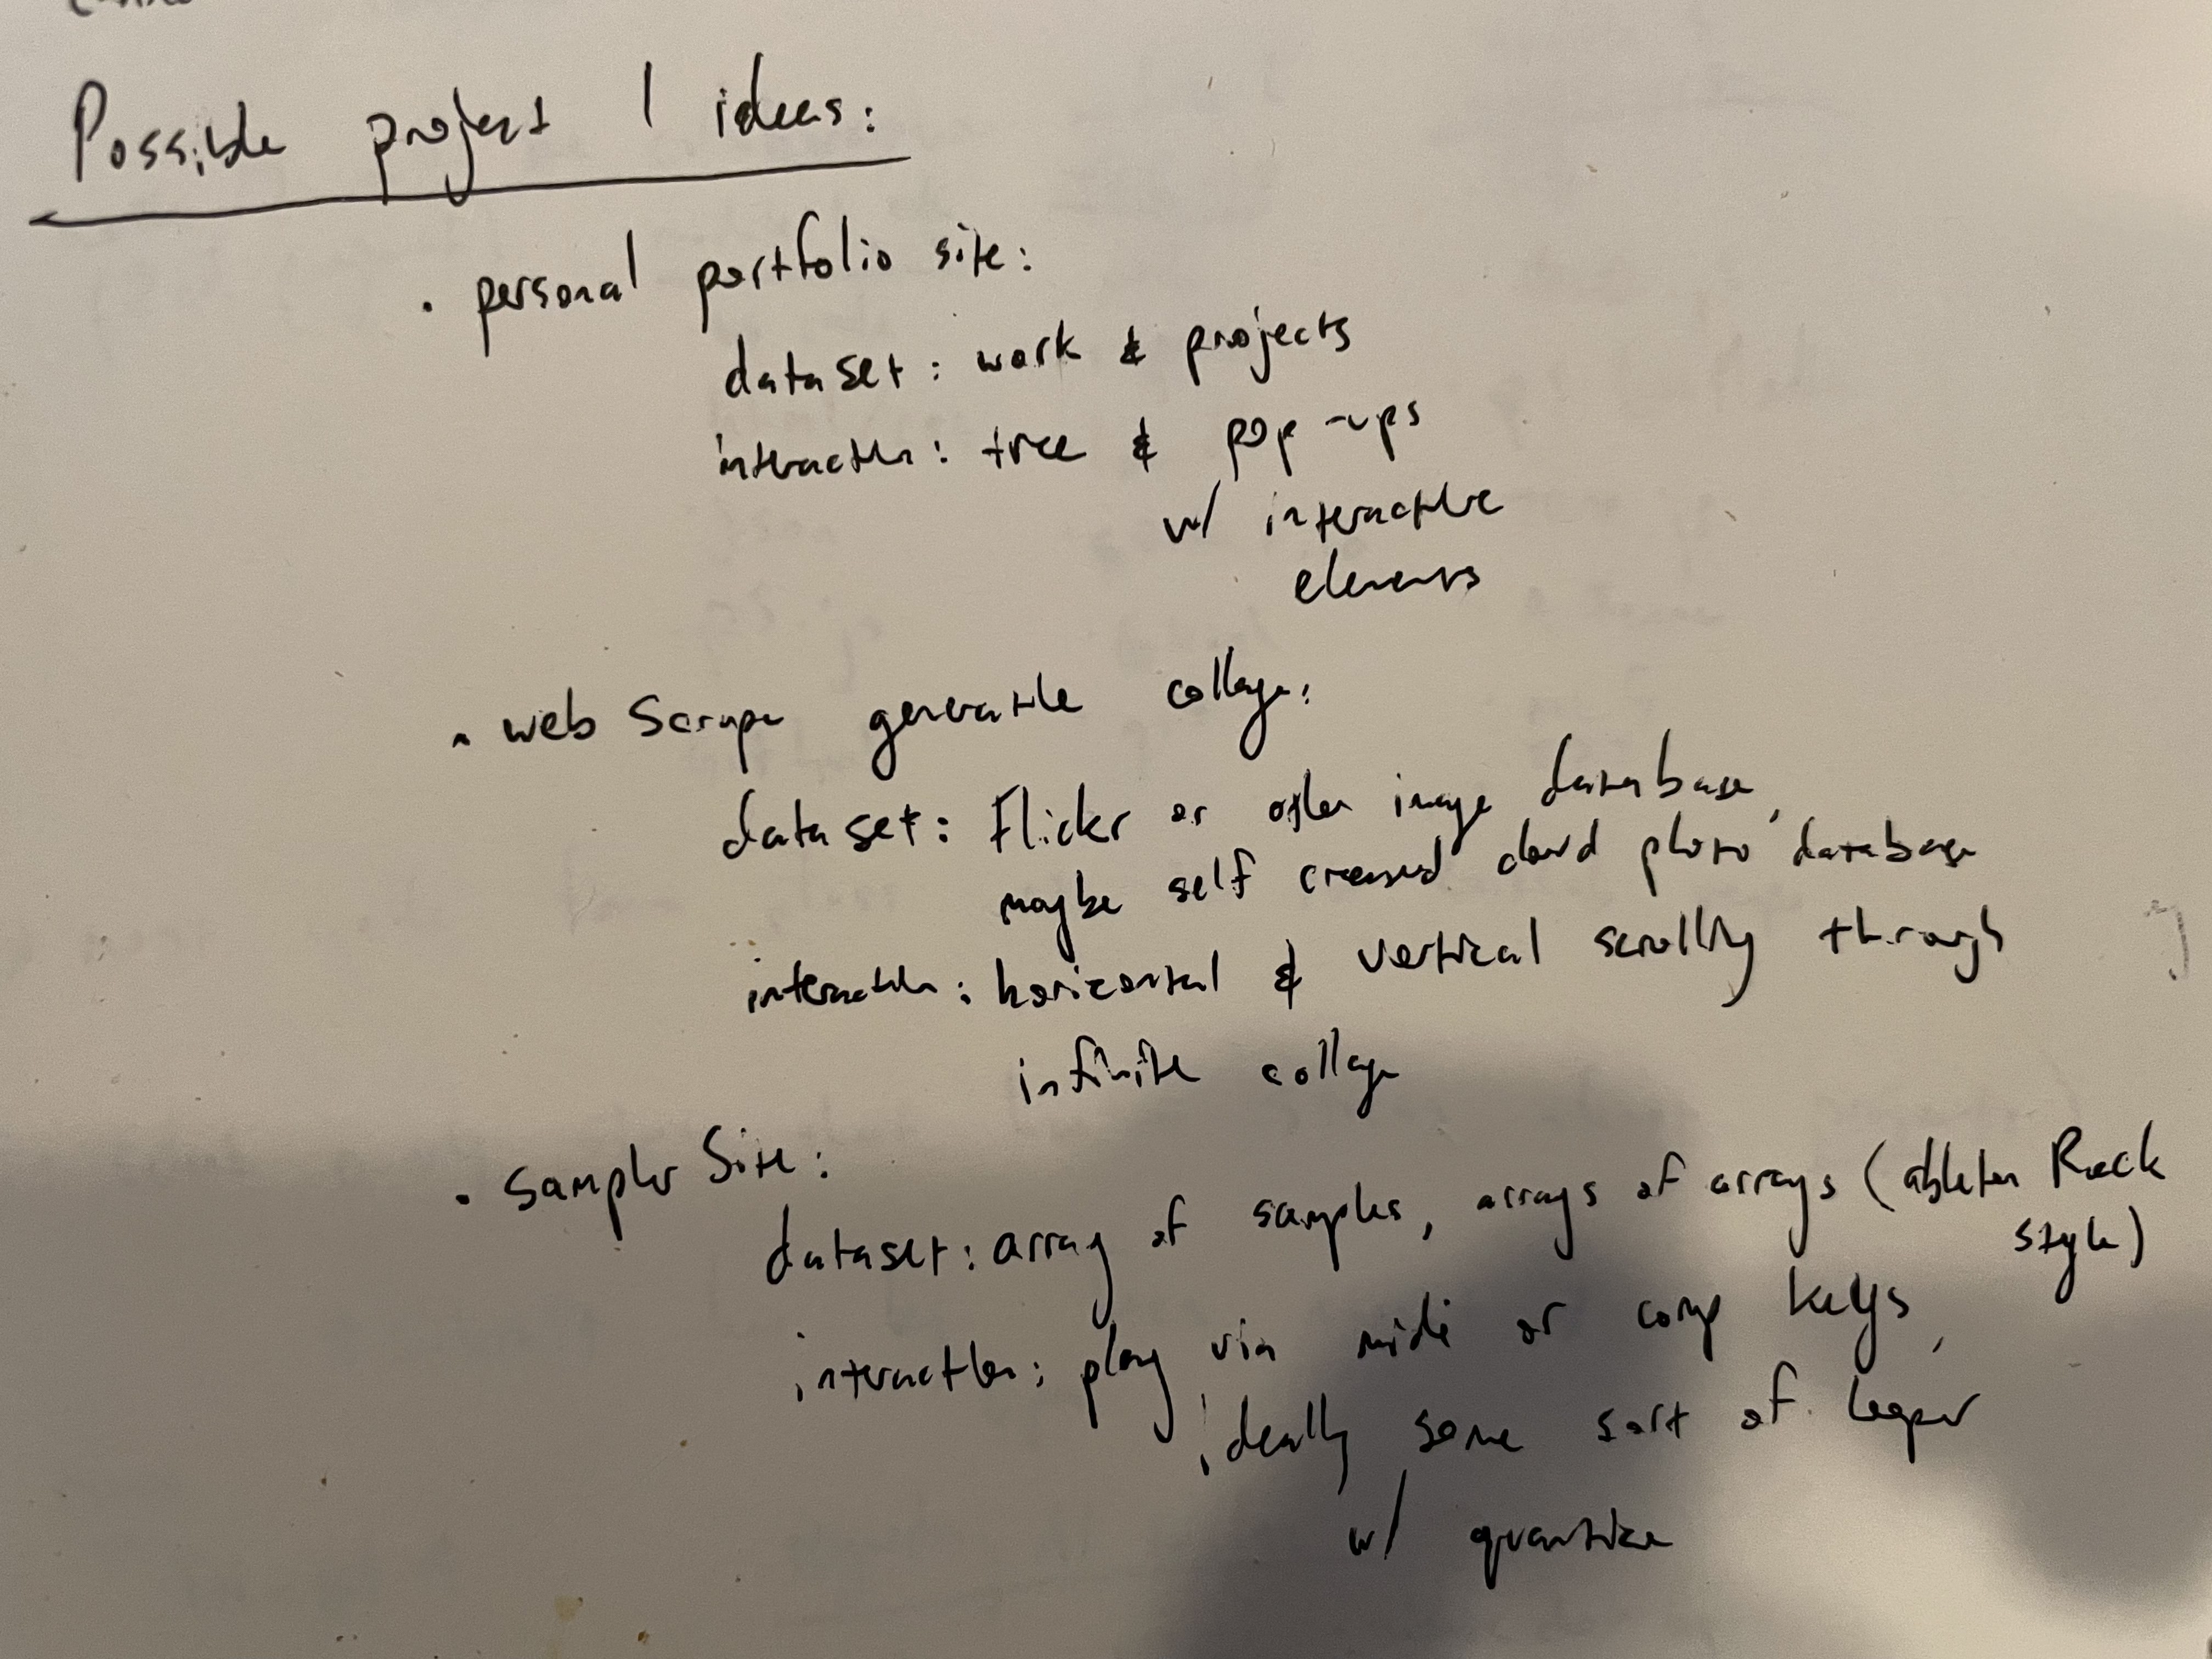 Possible project 1 ideas:
• personal portfolio site:
dataset: work & projects
interaction: tree & pop-ups
w/ interactive
elements
• web scrape generative collage:
dataset: Flickr or other image database,
maybe self created cloud photo database
interaction: horizontal & vertical scrolling through
infinite collage
• Sampler Site:
dataset: array of samples, arrays of arrays (ableton Rack
style)
interaction: play via midi or comp keys,
ideally some sort of looper
w/ quantize